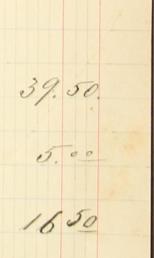 39.50.
5.00
16 50